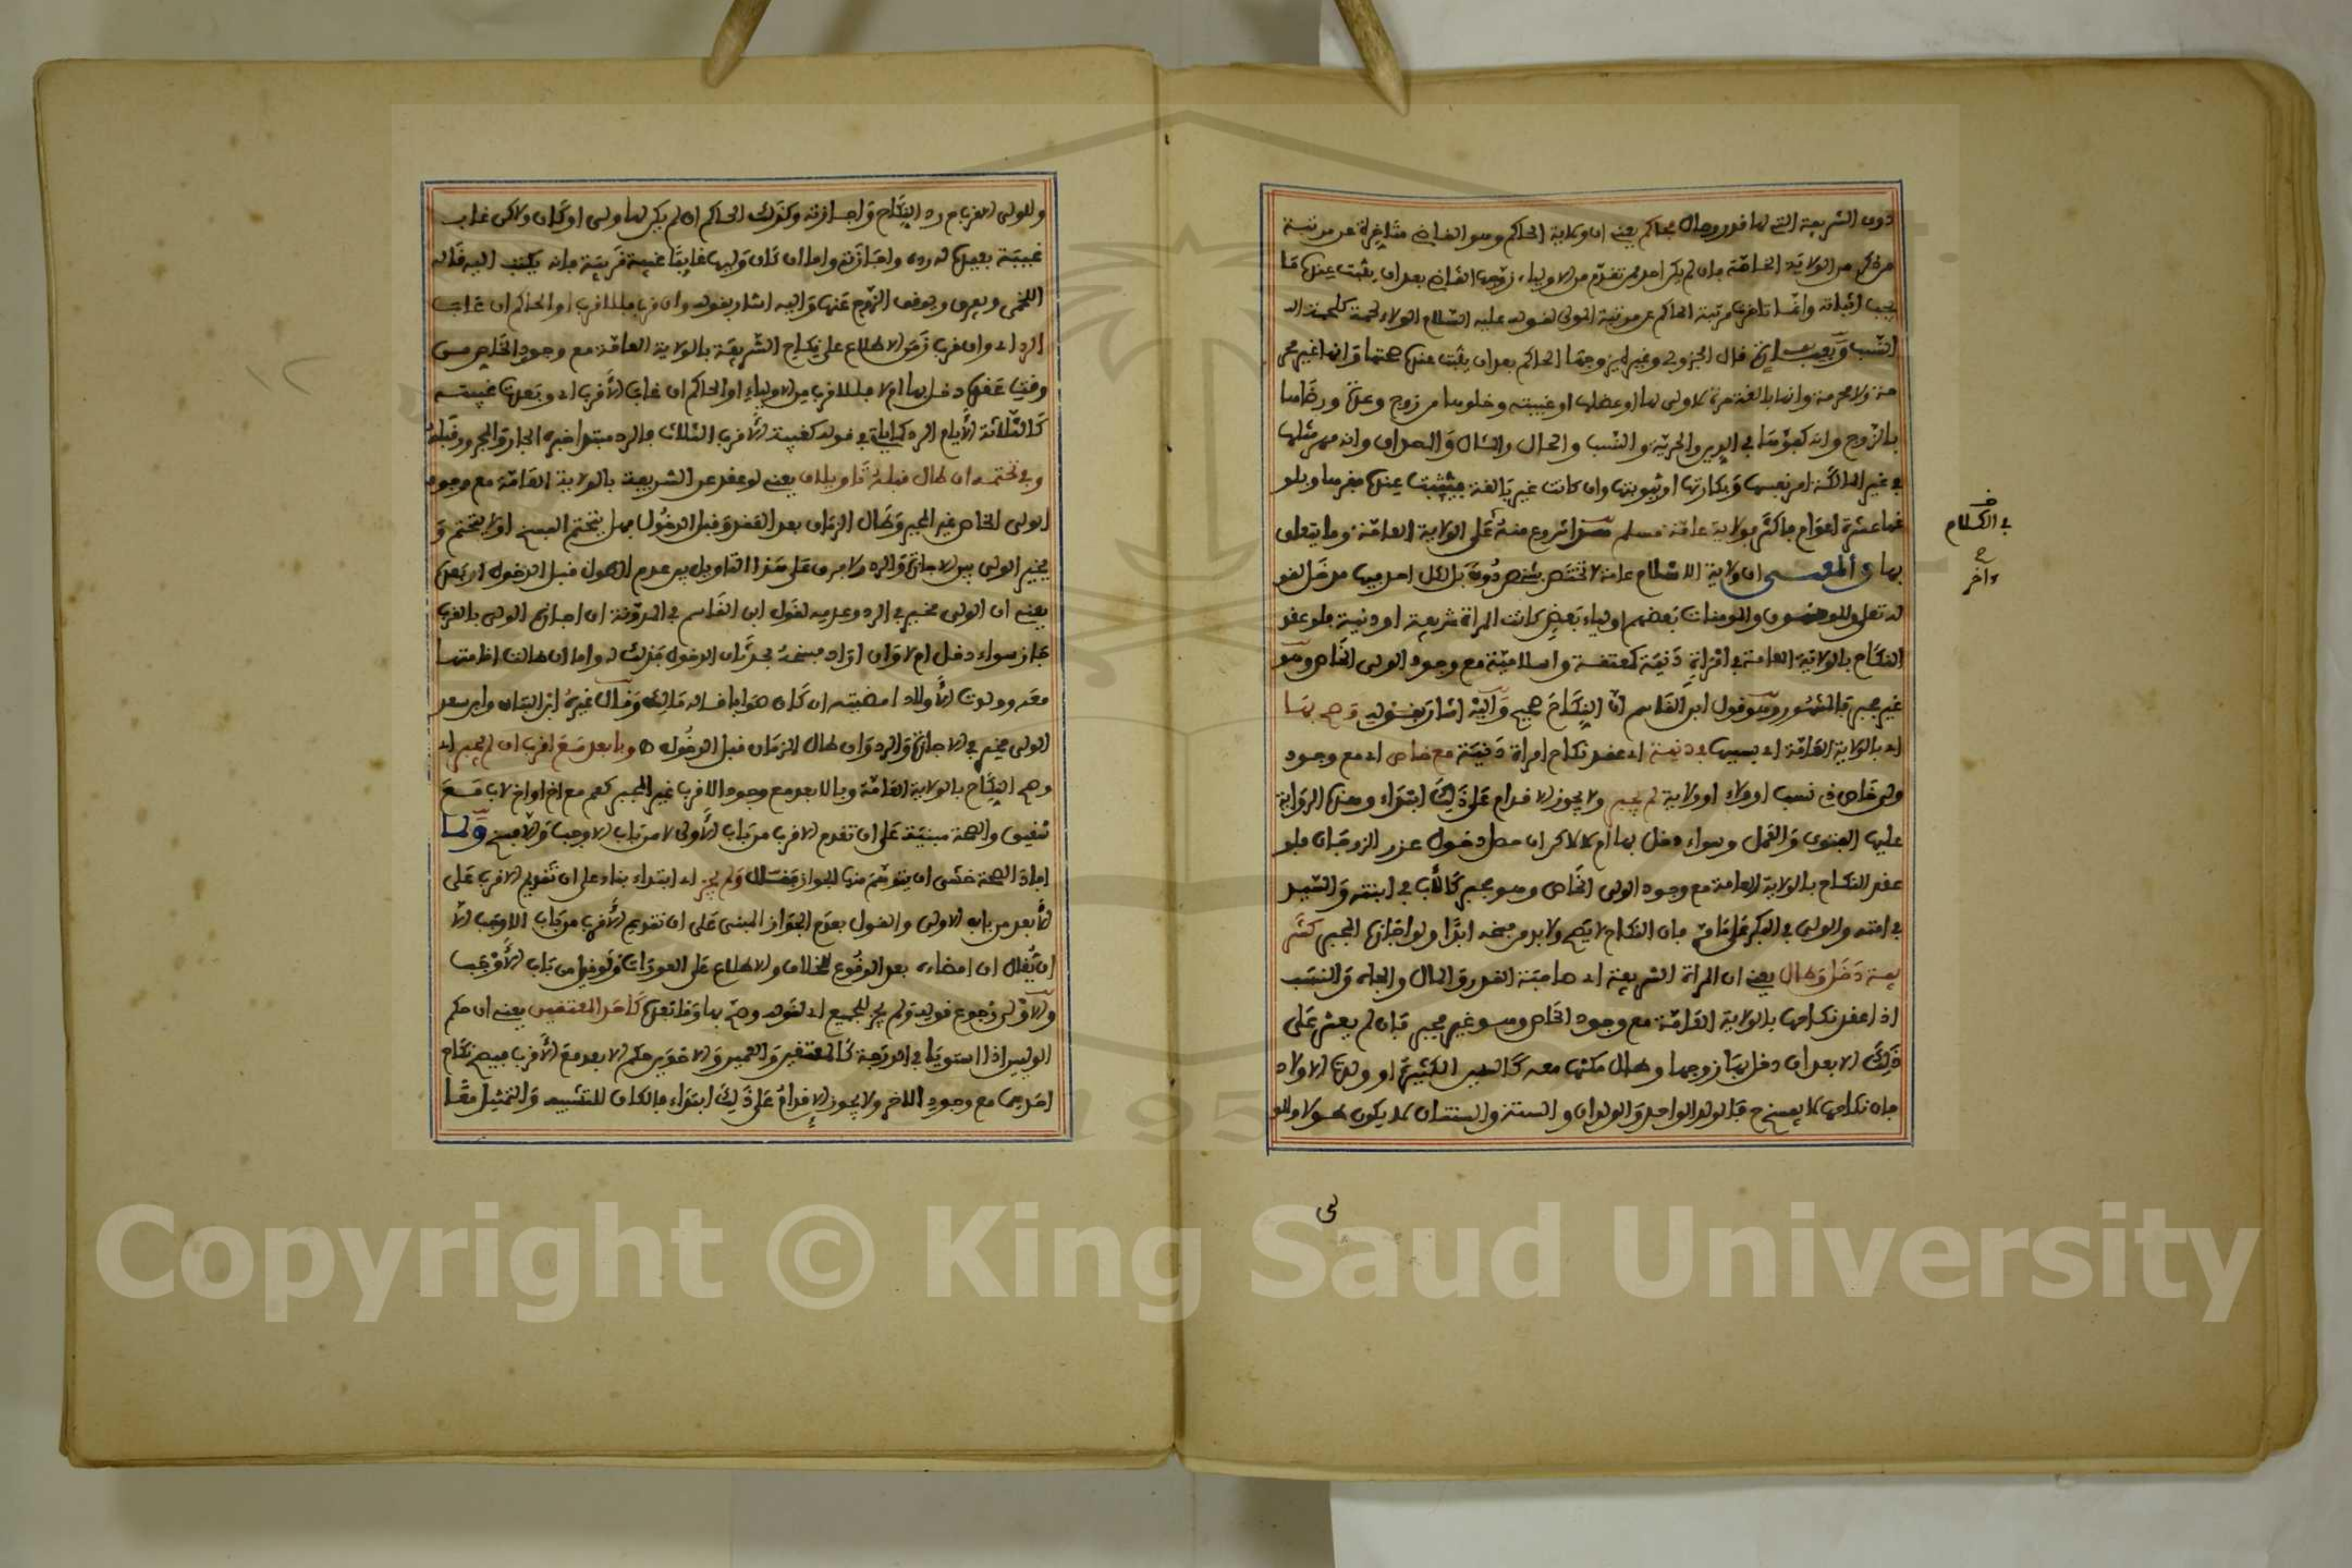 دون الشريعة التي لها قدر وحال فحاكم يعني ان ولاية الحاكم وهو القاضي متاخرة عن مرتبة
من ذكر من الولاية الخاصة فان لم يكن احد ممن تقدم من الاولياء زوجها القاضي بعد ان يثبت عنده ما
يجب اثباته وانما تاخرت مرتبة الحاكم عن مرتبة المولى لقوله عليه السلام الولاء لحمة كلحمة
النسب قال الجزولي وغيره يزوجها الحاكم بعد ان يثبت عنده صحتها وانها غير محر
مة ولا محرمة وانها بالغة حرة لا ولي لها او عضلها او غيبته وخلوها من زوج وعدة ورضاها
بالزوج وانه كفؤها في الدين والحرية والنسب والحال والمال والصداق وانه مهر مثلها
في غير المالكة امر نفسها وبكارتها او ثيوبتها وان كانت غير بالغة فيثبت عنده فقرها وبلو
غها عشرة اعوام فاكثر فولاية عامة مسلم هذا شروع منه على الولاية العامة وما يتعلق
بها والمعنى ان ولاية الاسلام عامة لا تختص بشخص دون بل لكل احد فيها مدخل لقو
له تعلى والمومنون والمومنات بعضهم اولياء بعض كانت المراة شريفة او دنية فلو عقد
النكاح بالولاية العامة في امراة دنية كمعتقة واسلامية مع وجود الولي الخاص وهو
غير مجبر فالمشهور وهو قول ابن القاسم ان النكاح صحيح واليه اشار بقوله وصح بها
اي بالولاية العامة في دنيئة اي عقد نكاح امراة دنية مع خاص اي مع وجود
ولي خاص من نسب او ولاء او ولاية لم يجبر ولا يجوز الاقدام على ذلك ابتداء وهذه الرواية
عليها الفتوى والعمل وسواء دخل بها ام لا لاكن ان حصل دخول عزر الزوجان فلو
عقد النكاح بالولاية العامة مع وجود الولي الخاص وهو مجبر كالاب في ابنته والسيد
في امته والولي في البكر فان النكاح لا يصح ولا بد من فسخه ابدا ولو اجازه المجبر كشر
يفة دخل وطال يعني ان المراة الشريفة اي صاحبة القدر والمال والجاه والنسب
اذا عقد نكاحها بالولاية العامة مع وجود الخاص وهو غير مجبر فان لم يعثر على
ذلك الا بعد ان دخل بها زوجها وطال مكثها معه كالسنين الكثيرة او ولدت الاولاد
فان نكاحها لا يفسخ ح فالولد الواحد والولدان والسنة والسنتان لا يكون طولا وللو
في الكلام
ءاخر
لى
وللولي القريب رد النكاح واجازته وكذلك الحاكم ان لم يكن لها ولي او كان ولاكن غاب
غيبة بعيدة له رده واجازته واما ان كان وليها غايبا غيبة قريبة فانه يكتب اليه قاله
اللخمي ويوقف الزوج عنها واليه اشار بقوله وان قرب فللاقرب او الحاكم ان غاب
الرد اي وان قرب زمن الاطلاع على نكاح الشريفة بالولاية العامة مع وجود الخاص من
وقت عقده دخل بها ام لا فللاقرب من الاولياء او الحاكم ان غاب الاقرب اي وبعدت غيبته
كالثلاثة الايام الرد كغيبة الاقرب الثلاث فالرد مبتدا خبره الجار والمجرور قبله
وفي تحتمه ان طال قبله تاويلان يعني لو عقد عن الشريفة بالولاية العامة مع وجود
الولي الخاص غير المجبر وطال الزمان بعد العقد وقبل الدخول فهل يتحتم الفسخ او لا يتحتم و
يخير الولي بين الاجازة والرد ولا فرق على هذا التاويل بين عدم الطول قبل الدخول او بعده
يعني ان الولي مخير في الرد وعدمه لقول ابن القاسم في المدونة ان اجازه الولي بالقرب
جاز سواء دخل ام لا وان اراد فسخه بحدثان الدخول فذلك له واما ان طالت اقامتها
معه وولدت الاولاد امضيته ان كان صوابا قاله مالك وقال غيره ابن التبان وابن سعد
الولي مخير في الاجازة والرد وان طال الزمان قبل الدخول ص وبابعد مع اقرب ان لم يجبر اي
وصح النكاح بالولاية العامة وبالابعد مع وجود الاقرب غير المجبر كعم مع اخ او اخ لاب مع
شقيق والصحة مبنية على ان تقدم الاقرب من باب الاولى لا من باب الاوجب والافسخ ولما
افاد الصحة خشي ان يتوهم منها الجواز فقال ولم يجز اي ابتداء بناء على ان تقديم الاقرب على
الابعد من باب الاولى والقول بعدم الجواز المبني على ان تقديم الاقرب من باب الاوجب الا
ان يقال ان امضاءه بعد الوقوع للخلاف والاطلاع على العورات ولو قيل من باب الاوجب
والاولى رجوع قوله ولم يجز للجميع اي لقوله وصح بها وما بعده كاحد المعتقين يعني ان حكم
الوليين اذا استويا في الدرجة كالمعتقين والعمين والاخوين حكم الابعد مع الاقرب فيصح نكاح
احدهما مع وجود الاخر ولا يجوز الاقدام على ذلك ابتداء فالكاف للتشبيه والتمثيل معا
Copyright © King Saud University